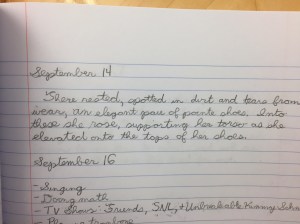 September 14
There rested, spotted in dirt and tears from
wear, an elegant pair of pointe shoes. Into
these she rose, supporting her torso as she
elevated onto the tops of her shoes.
September 16
- Singing
- Doing math
- TV Shows: Friends, SNL, + Unbreakable Kimmy Schm